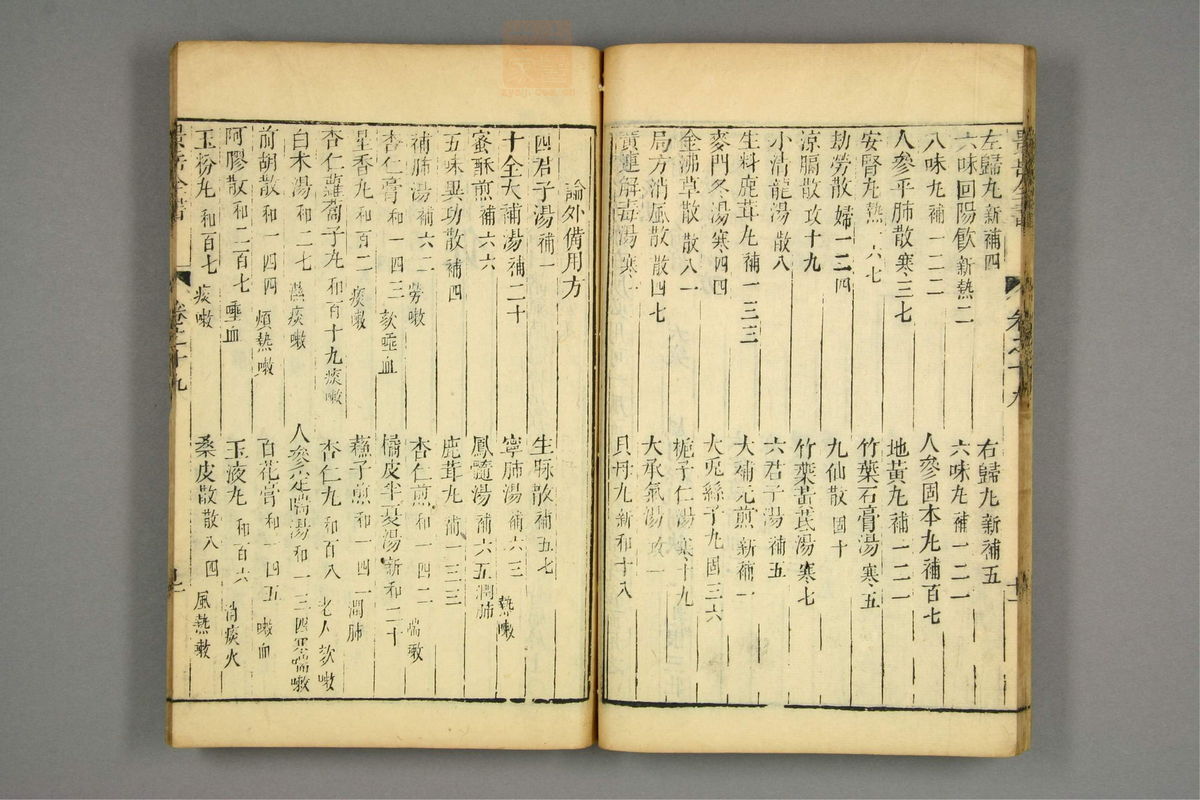 左歸丸新補四 右歸丸新補五
六味回陽飲新熱二 六味丸補一二一
八味丸補一二二 人參固本丸補百七
人參平肺散寒三七 地黃丸補一二一
安腎丸熱一六七 竹葉石膏湯寒五
劫勞散婦一二四 九仙散固十
涼膈散攻十九 竹葉黃芪湯寒七
小清龍湯散八 六君子湯補五
生料鹿茸丸補一三三 大補元煎新補一
麥門冬湯寒四四 大兎絲子丸固三六
金沸草散散八一 梔子仁湯寒十九
局方消風散散四七 大承氣湯攻一
黃連解毒湯寒一 貝母丸新和十八
論外備用方
四君子湯補一 生脉散補五七
十全大補湯補二十 寧肺湯補六三 熱嗽
蜜酥煎補六六 鳳髓湯補六五潤肺
五味異功散補四 鹿茸丸補一三三
補肺湯補六二 勞嗽 杏仁煎和一四二 喘嗽
杏仁膏和一四三 欬唾血 橘皮半夏湯新和二十
星香丸和百二 痰嗽 蘇子煎和一四一潤肺
杏仁蘿蔔子丸和百十九痰嗽 杏仁丸和百八 老人欬嗽
白木湯和二七 濕痰嗽 人參定喘湯和一三四寒喘嗽
前胡散和一四四 煩熱嗽 百花膏和一四五 嗽血
阿膠散和二百七 唾血 玉液丸和百六 消痰火
玉粉丸和百七 痰嗽 桑皮散散八四 風熱嗽
景岳全書 卷之十九